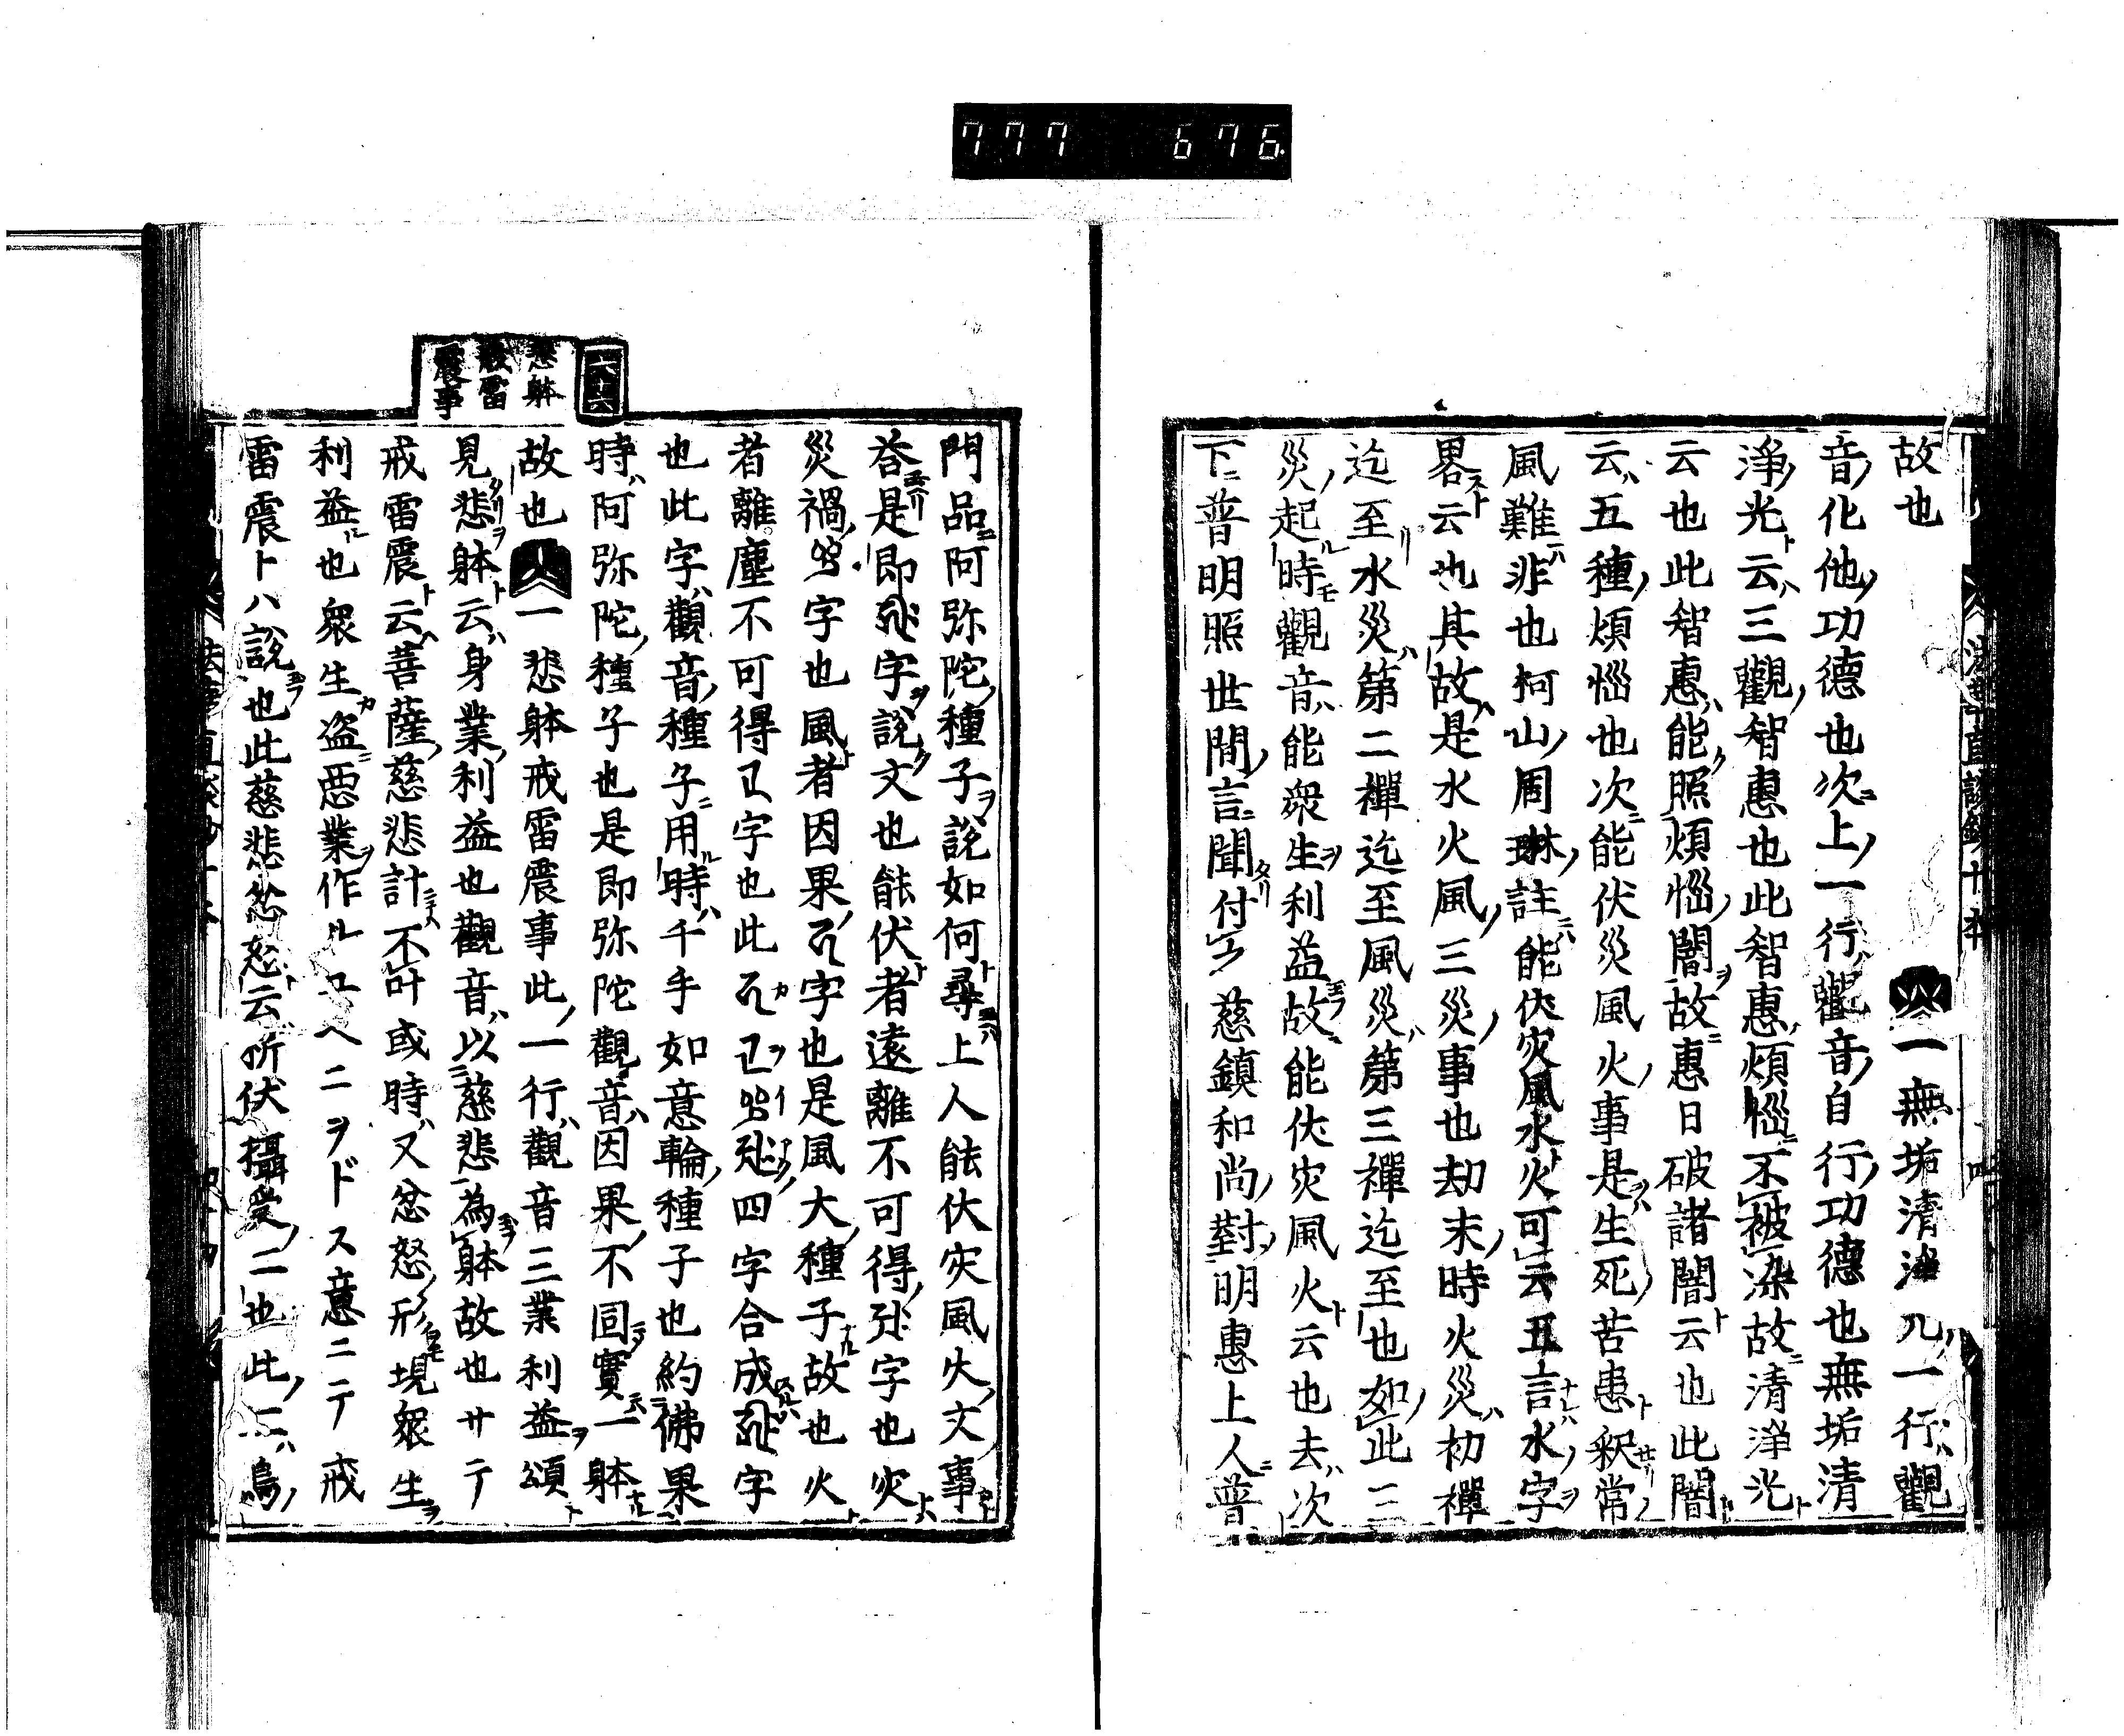 777 676
故也 一無垢清淨八一行觀
音化他功德也次上一行觀音自行功德也無垢清
淨光云三觀智惠也此智惠煩惱不被染故清淨光
云也此智惠能照煩惱闇故惠日破諸闇云也此闇
云五種煩惱也次能伏災風火事是生死苦患釈常
風難非也柯山周琳註能伏灾風水火可云五言水字
畧云也其故是水火風三災事也劫末時火災初禪
迄至水災第二禪迄至風災第三禪迄至也如此三
災起時觀音能衆生利益故能伏灾風火云也去次
下普明照世間言聞付テ慈鎮和尚對明惠上人普
六十六
悲躰
戒雷
震事
門品阿弥陀種子說如何尋上人能伏灾風火文事
荅是即字說文也能伏者遠離不可得字也灾
災禍字也風者因果字也是風大種子故也火
者離塵不可得字也此四字合成字
也此字觀音種子用時千手如意輪種子也約佛果
時阿弥陀種子也是即弥陀觀音因果不同實一躰
故也 一悲躰戒雷震事此一行觀音三業利益頌
見悲躰云身業利益也觀音以慈悲為躰故也サテ
戒雷震云菩薩慈悲計不叶或時又忿怒形現衆生
利益也衆生盗惡業作ルユヘニヲドス意ニテ戒
雷震トハ說也此慈悲忿怒云折伏攝受二也此二鳥